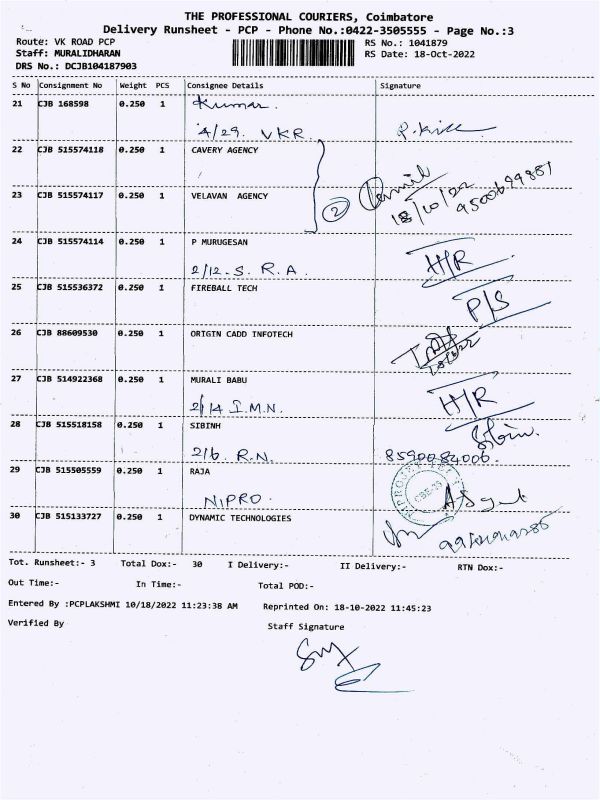 THE PROFESSIONAL COURIERS, Coimbatore
Delivery Runsheet - PCP - Phone No.:0422-3505555 - Page No.:3
Route: VK ROAD PCP RS No.: 1041879
Staff: MURALIDHARAN RS Date: 18-Oct-2022
DRS No.: DCJB104187903
S No Consignment No Weight PCS Consignee Details Signature
21 CJB 168598 0.250 1 Kumar.
4/29. VKR.
22 CJB 515574118 0.250 1 CAVERY AGENCY
23 CJB 515574117 0.250 1 VELAVAN AGENCY
2 18/10/22
24 CJB 515574114 0.250 1 P MURUGESAN
2/12. S. R. A. H/R
25 CJB 515536372 0.250 1 FIREBALL TECH
P/S
26 CJB 88609530 0.250 1 ORIGIN CADD INFOTECH
27 CJB 514922368 0.250 1 MURALI BABU
2/14 I.M.N. H/R
28 CJB 515518158 0.250 1 SIBINH
2/6. R.N. 8590084006.
29 CJB 515505559 0.250 1 RAJA
NIPRO.
30 CJB 515133727 0.250 1 DYNAMIC TECHNOLOGIES
Tot. Runsheet:- 3 Total Dox:- 30 I Delivery:- II Delivery:- RTN Dox:-
Out Time:- In Time:- Total POD:-
Entered By :PCPLAKSHMI 10/18/2022 11:23:38 AM Reprinted On: 18-10-2022 11:45:23
Verified By Staff Signature